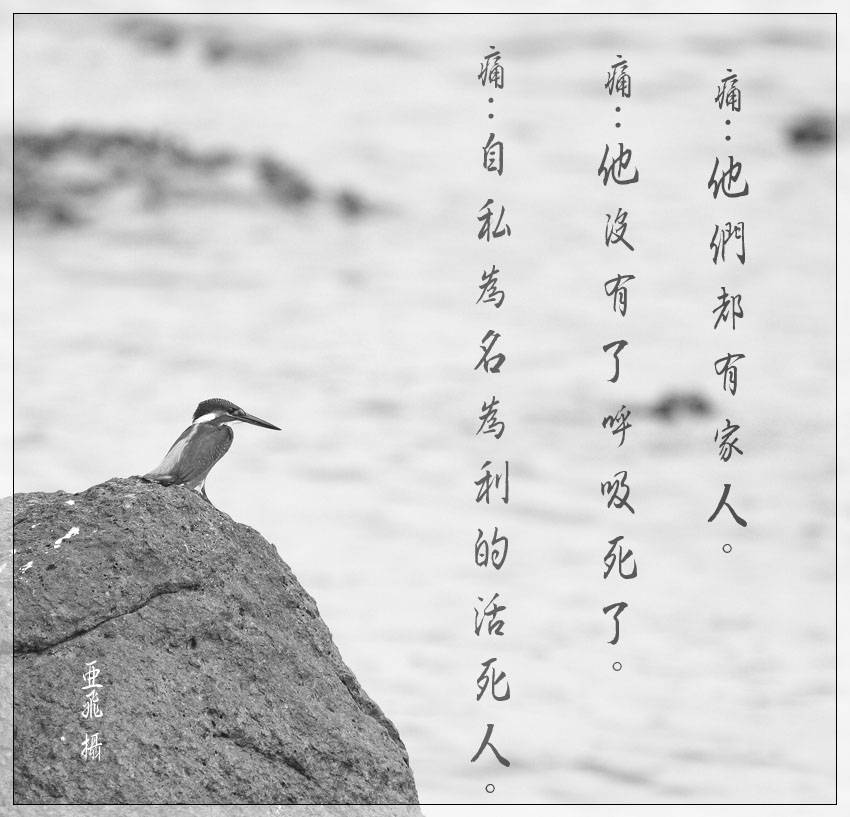 痛：他們都有家人。
痛：他沒有了呼吸死了。
痛：自私為名為利的活死人。
亞飛 攝